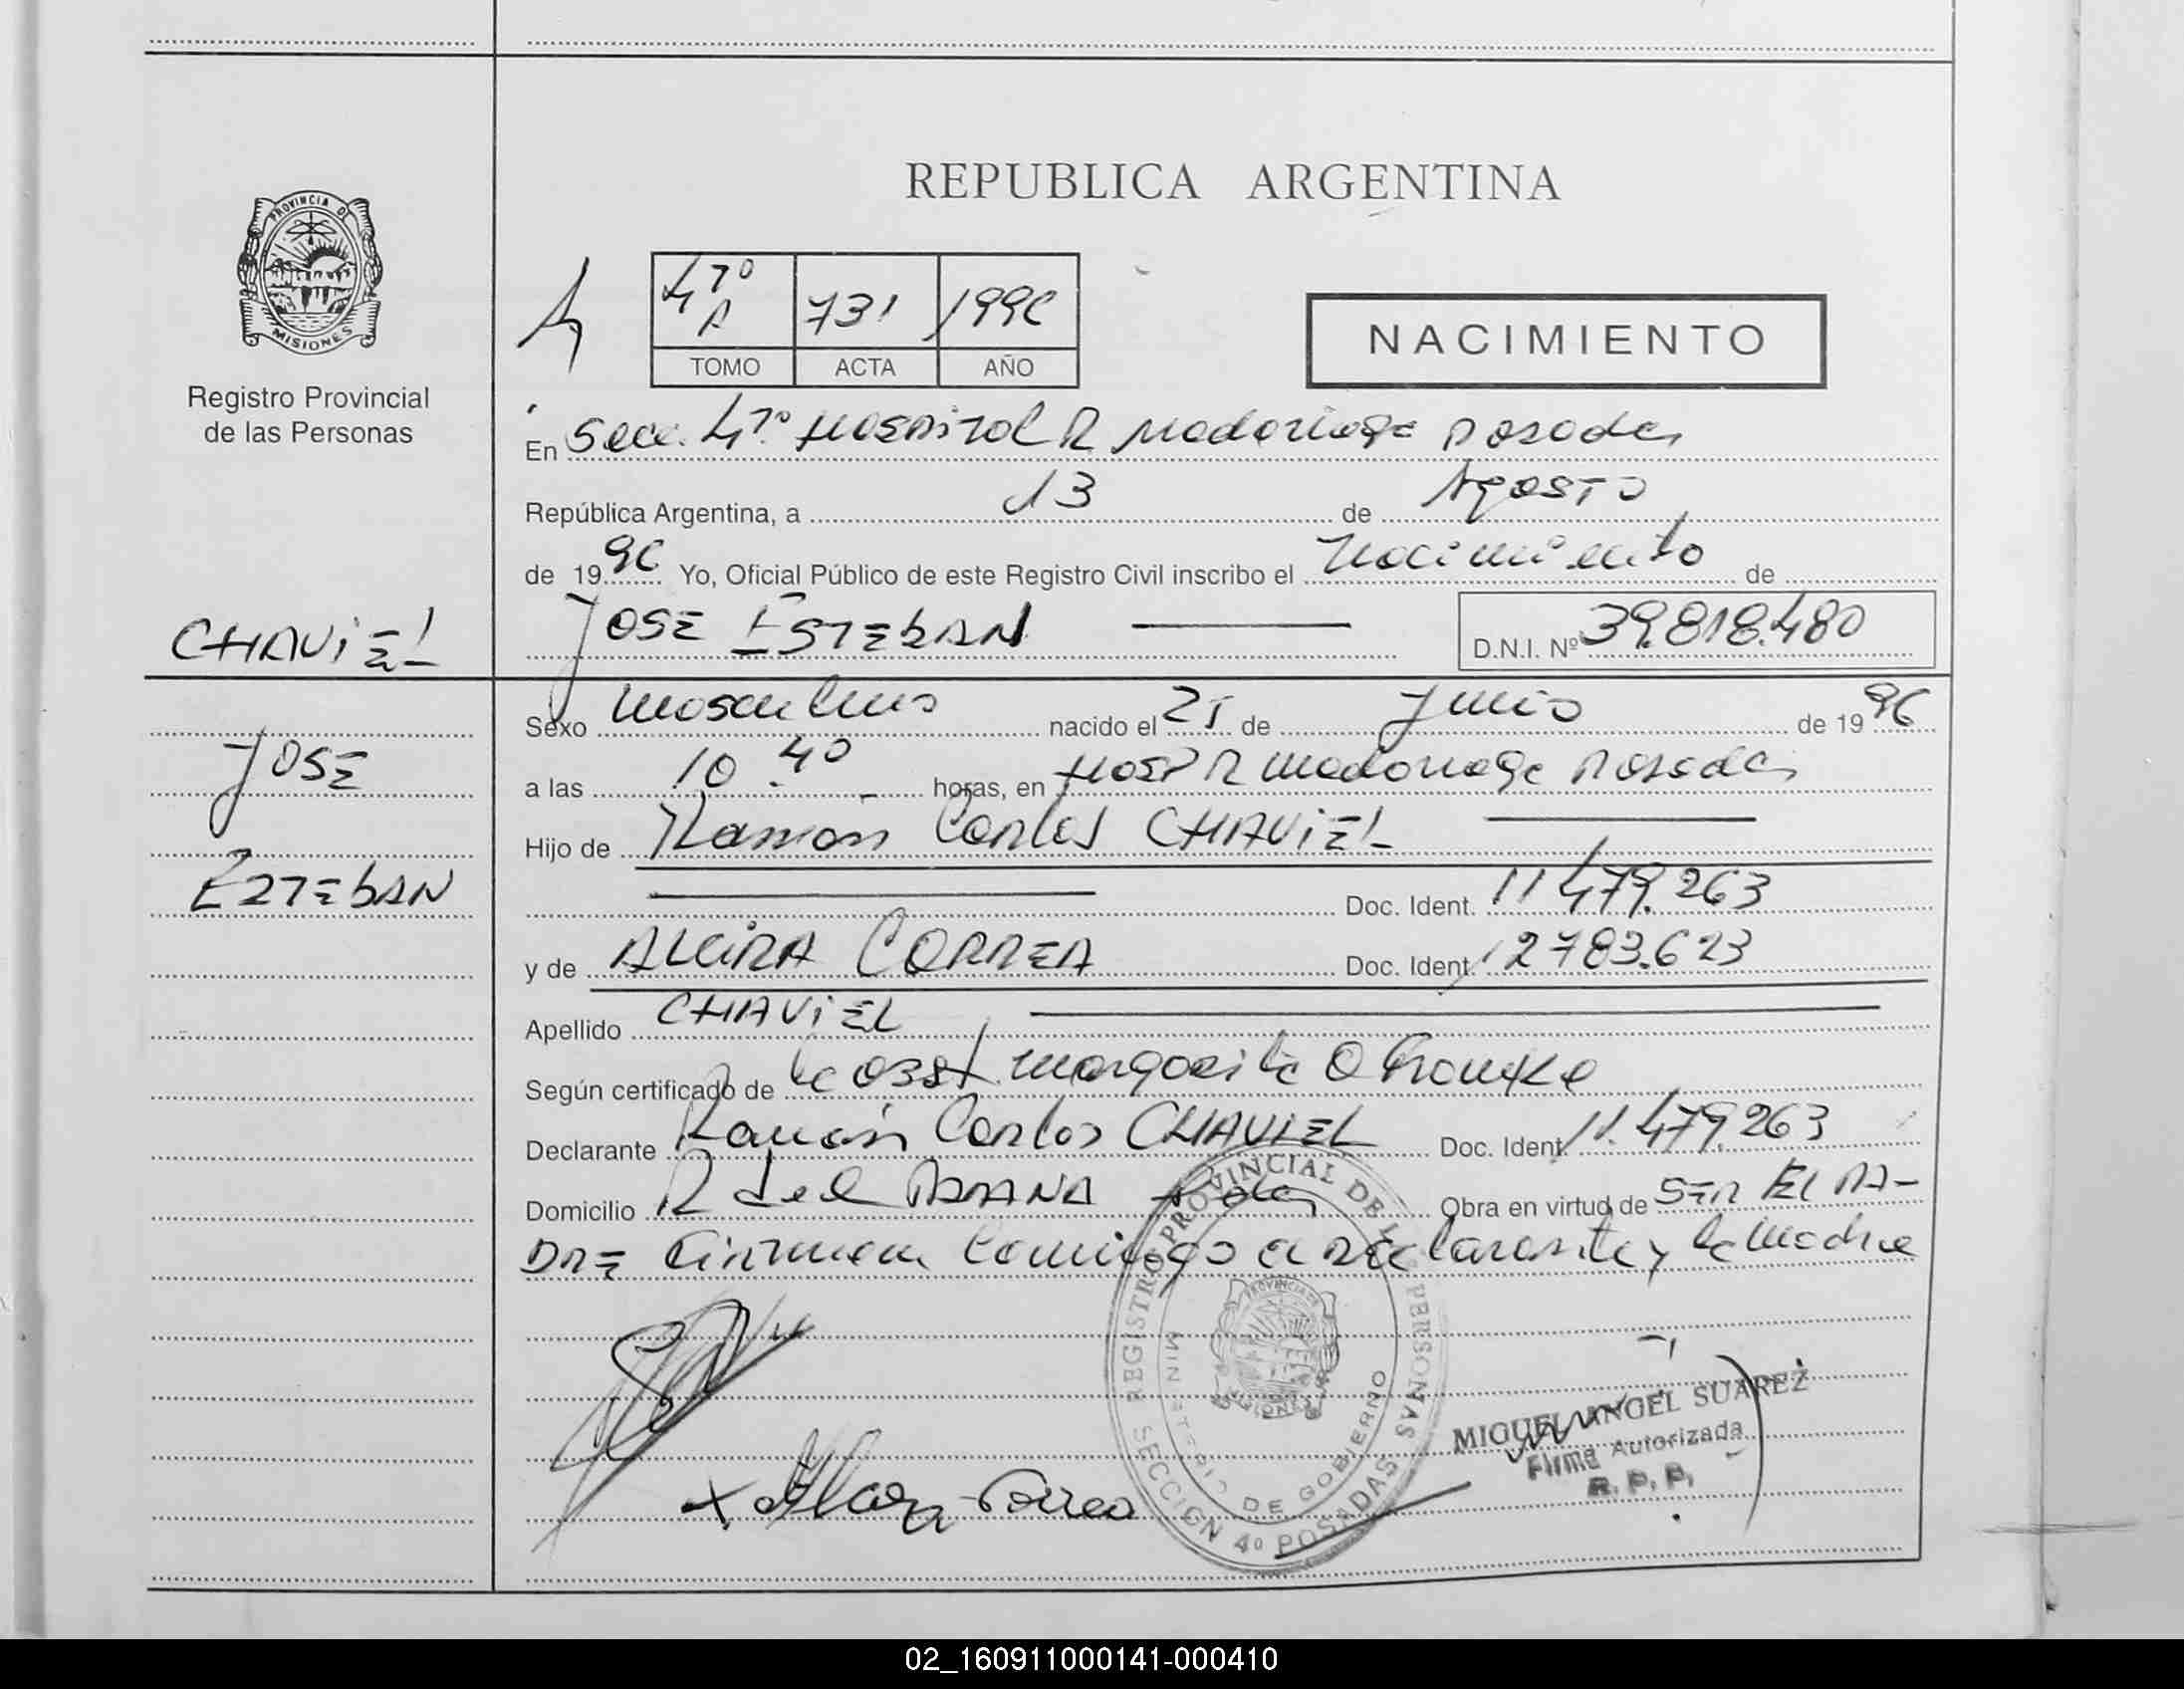 REPUBLICA ARGENTINA
PROVINCIA DE
MISIONES
Registro Provincial
de las Personas
4to A 731 1996
TOMO ACTA AÑO
NACIMIENTO
En Secc. 4to. Hospital R Madariaga Posadas
República Argentina, a 13 de Agosto
de 1996 Yo, Oficial Público de este Registro Civil inscribo el Nacimiento de
JOSE ESTEBAN D.N.I. Nº 39.818.480
CHAViEL
JOSE
ESTEBAN
Sexo Masculino nacido el 21 de Junio de 1996
a las 10.40 horas, en Hosp R Madariaga Posadas
Hijo de Ramón Carlos CHAViEL
Doc. Ident. 11.479.263
y de ALCIRA CORREA Doc. Ident. 12783.623
Apellido CHAViEL
Según certificado de la obst. Margarita
Declarante Ramón Carlos CHAVIEL Doc. Ident. 11.479.263
Domicilio R del PARANA Obra en virtud de SER EL PA-
DRE Firman Conmigo el Declarante y la Madre
REGISTRO PROVINCIAL DE LAS PERSONAS
MINISTERIO DE GOBIERNO
SECCION 4º POSADAS
PROVINCIA DE
MISIONES
x Alcira Correa
MIGUEL ANGEL SUAREZ
Firma Autorizada
R. P. P.
02_160911000141-000410